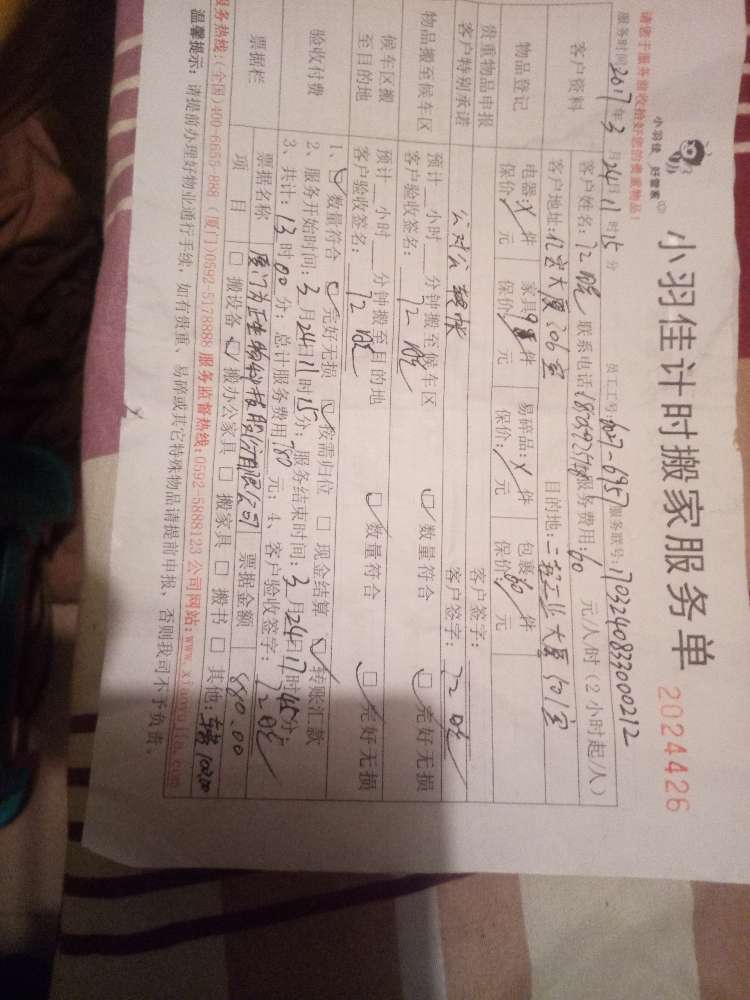 请您于服务验收检好您的搬家物品！
小羽佳 好管家
小羽佳计时搬家服务单
2024426
服务时间2017年3月24日11时15分 员工工号: 服务联号:
客户资料
客户姓名: 联系电话 服务费用:60元/人/时(2小时起/人)
客户地址:亿宏大厦306室 目的地:二轻工业大厦501室
物品登记
电器: 件 家具 件 易碎品: 件 包裹 件
保价: 元 保价 元 保价: 元 保价: 元
贵重物品申报 客户签字:
客户特别承诺 公对公转帐 客户签字:
物品搬至候车区
预计 小时 分钟搬至候车区 数量符合 完好无损
客户验收签名:
候车区搬至目的地
预计 小时 分钟搬至目的地 数量符合 完好无损
客户验收签名:
验收付费
1、数量符合 完好无损 按需归位 现金结算 转账汇款
2、服务开始时间:3月24日11时15分;服务结束时间:3月24日17时45分;
3、共计:13时00分;总计服务费用780元;4、客户验收签字:
票据栏
票据名称 票据金额 880.00
项目 搬设备 搬办公家具 搬家具 搬书 其他:车费100.00
服务热线:(全国)400-6655-888 (厦门)0592-5178888 服务监督热线:0592-5888123 公司网站:www.xiaoyujia.com
温馨提示: 请提前办理好物业通行手续, 如有贵重、易碎或其它特殊物品请提前申报, 否则我司不予负责。